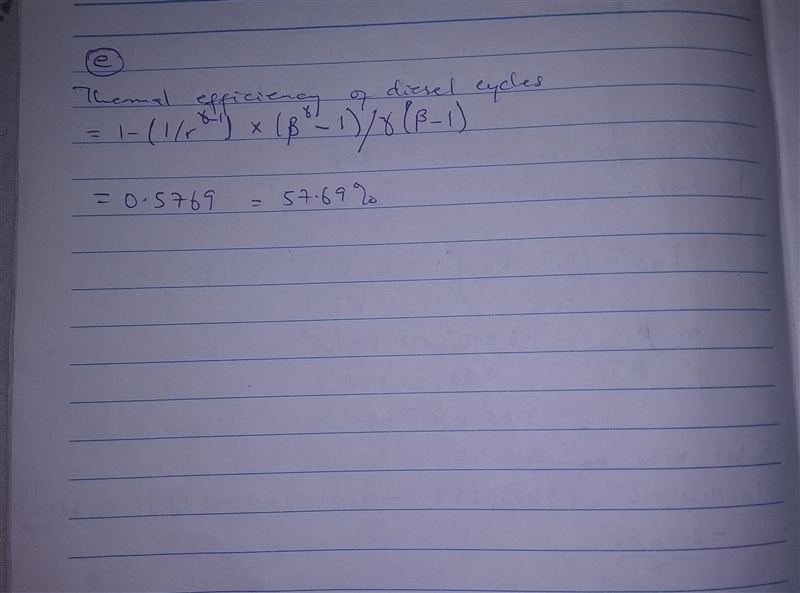 e
Thermal efficiency of diesel cycles
= 1 - (1/r^γ-1) × (β^γ - 1)/γ(β-1)
= 0.5769 = 57.69%